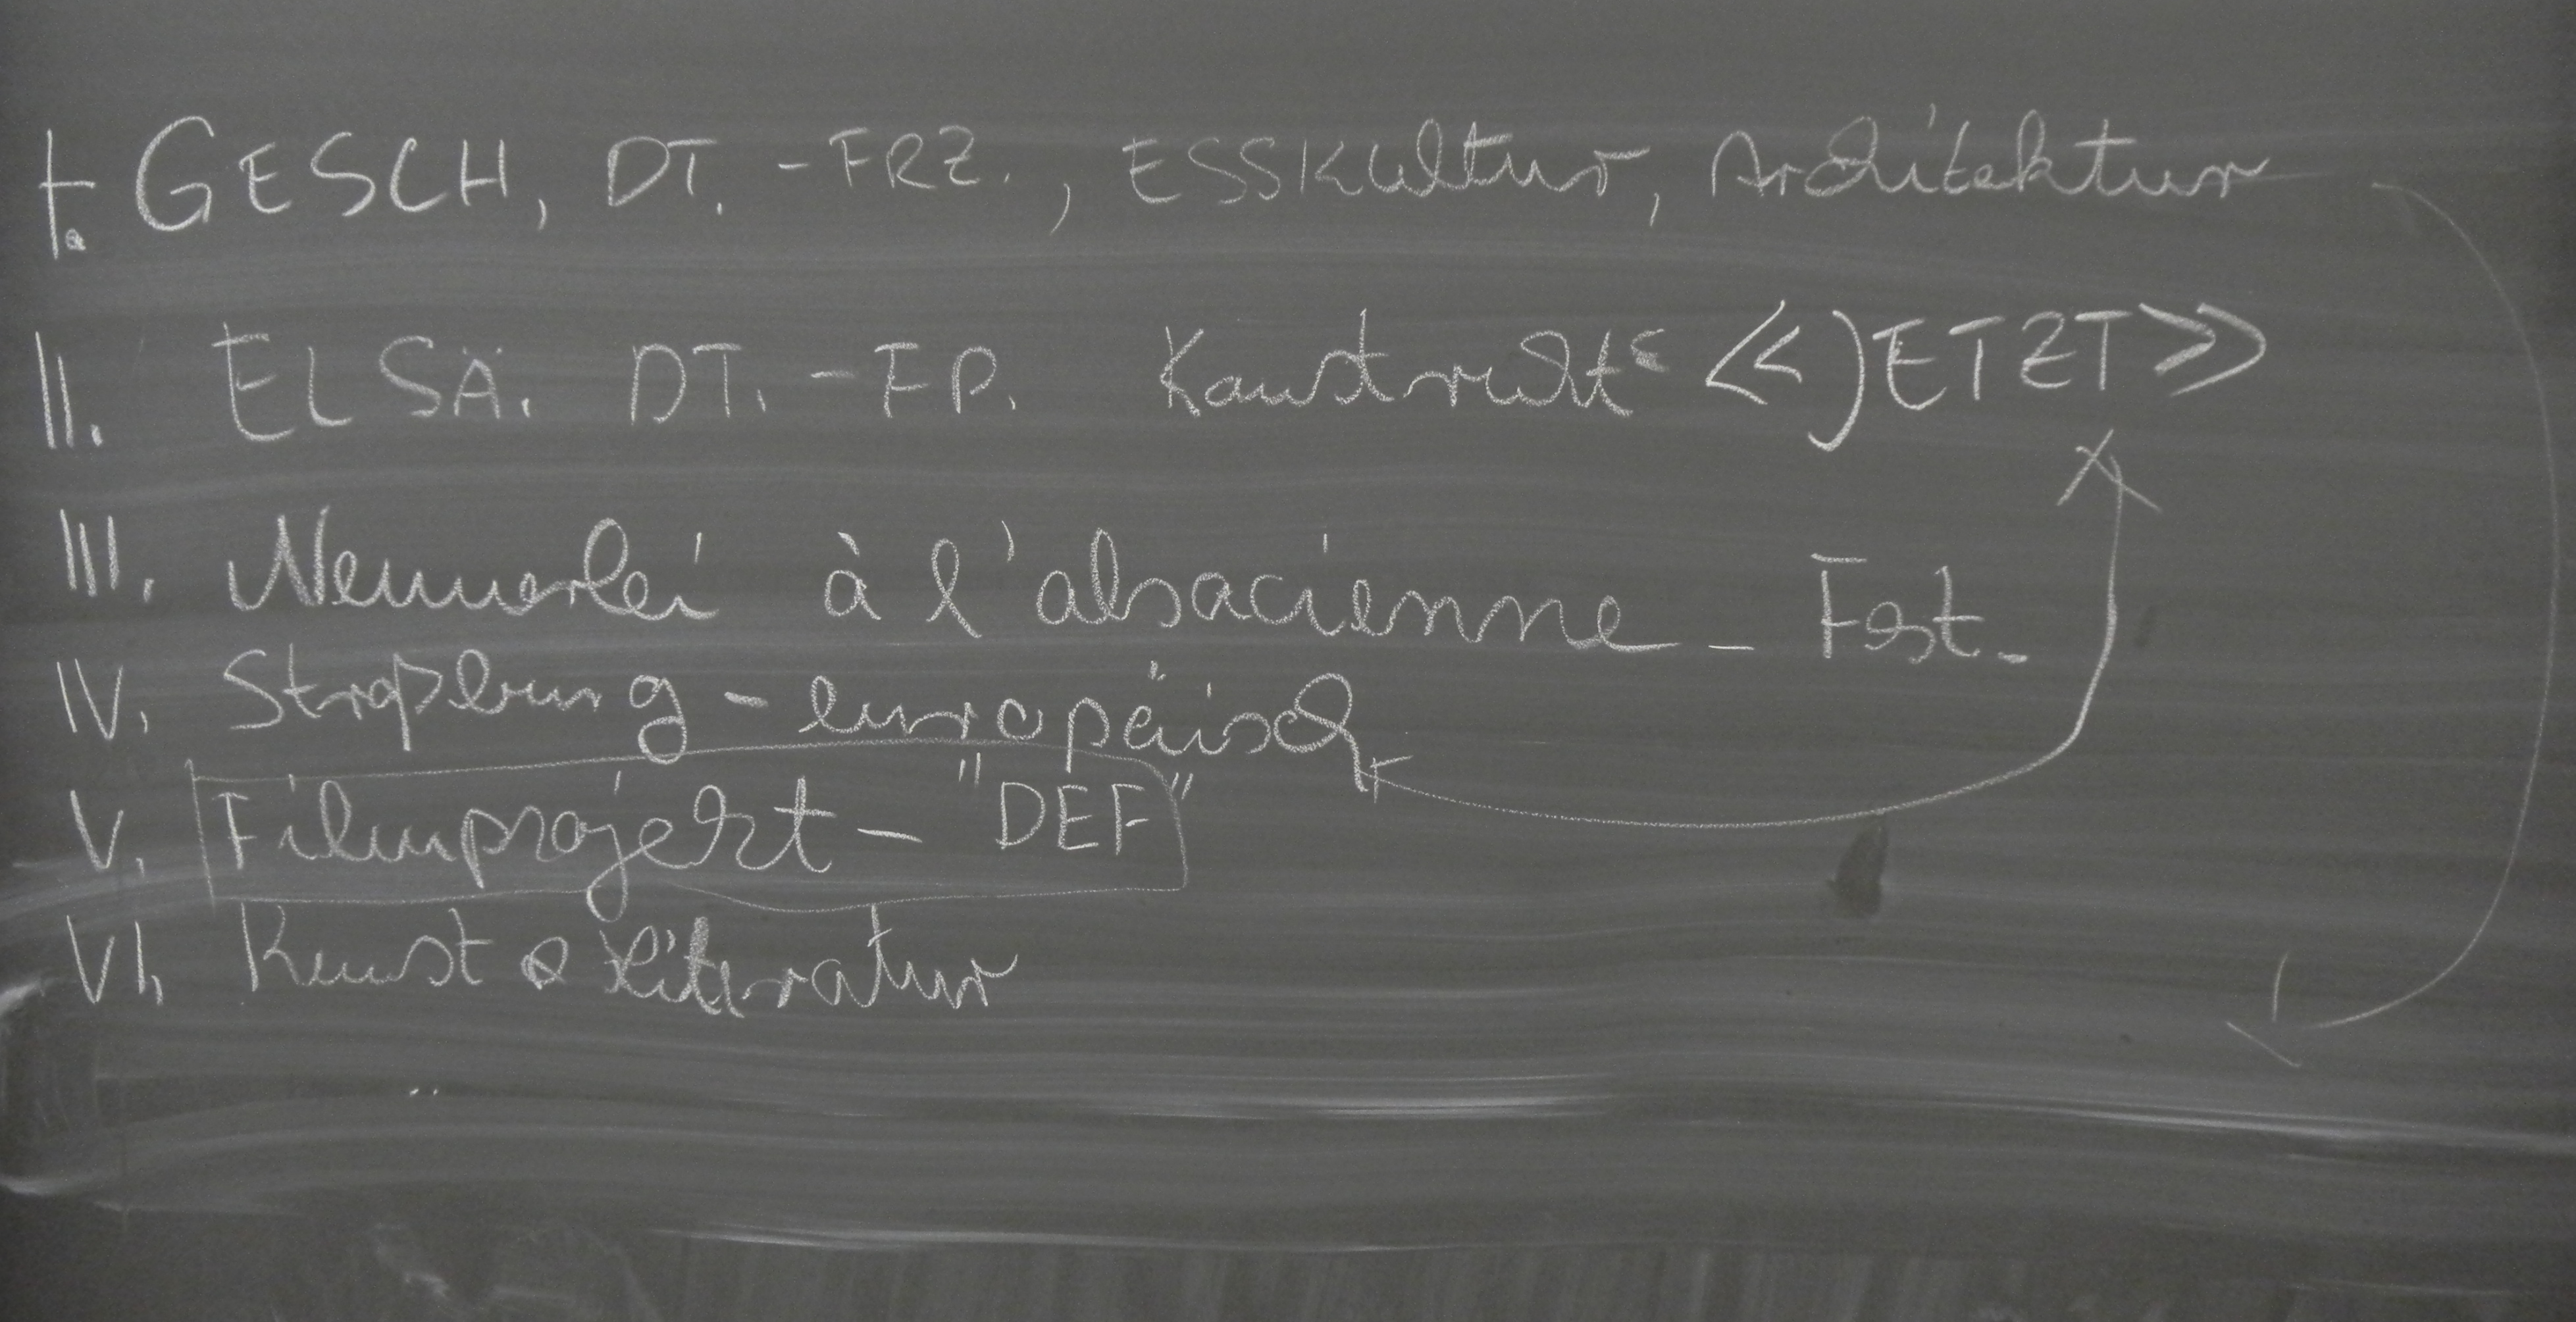 I. GESCH, DT.-FRZ., ESSKultur, Architektur
II. ELSÄ. DT.-FP. «JETZT»
III. à l'alsacienne - Fest.
IV. Straßburg - europäisch
V. Filmprojekt - "DEF"
VI. Kunst & Literatur